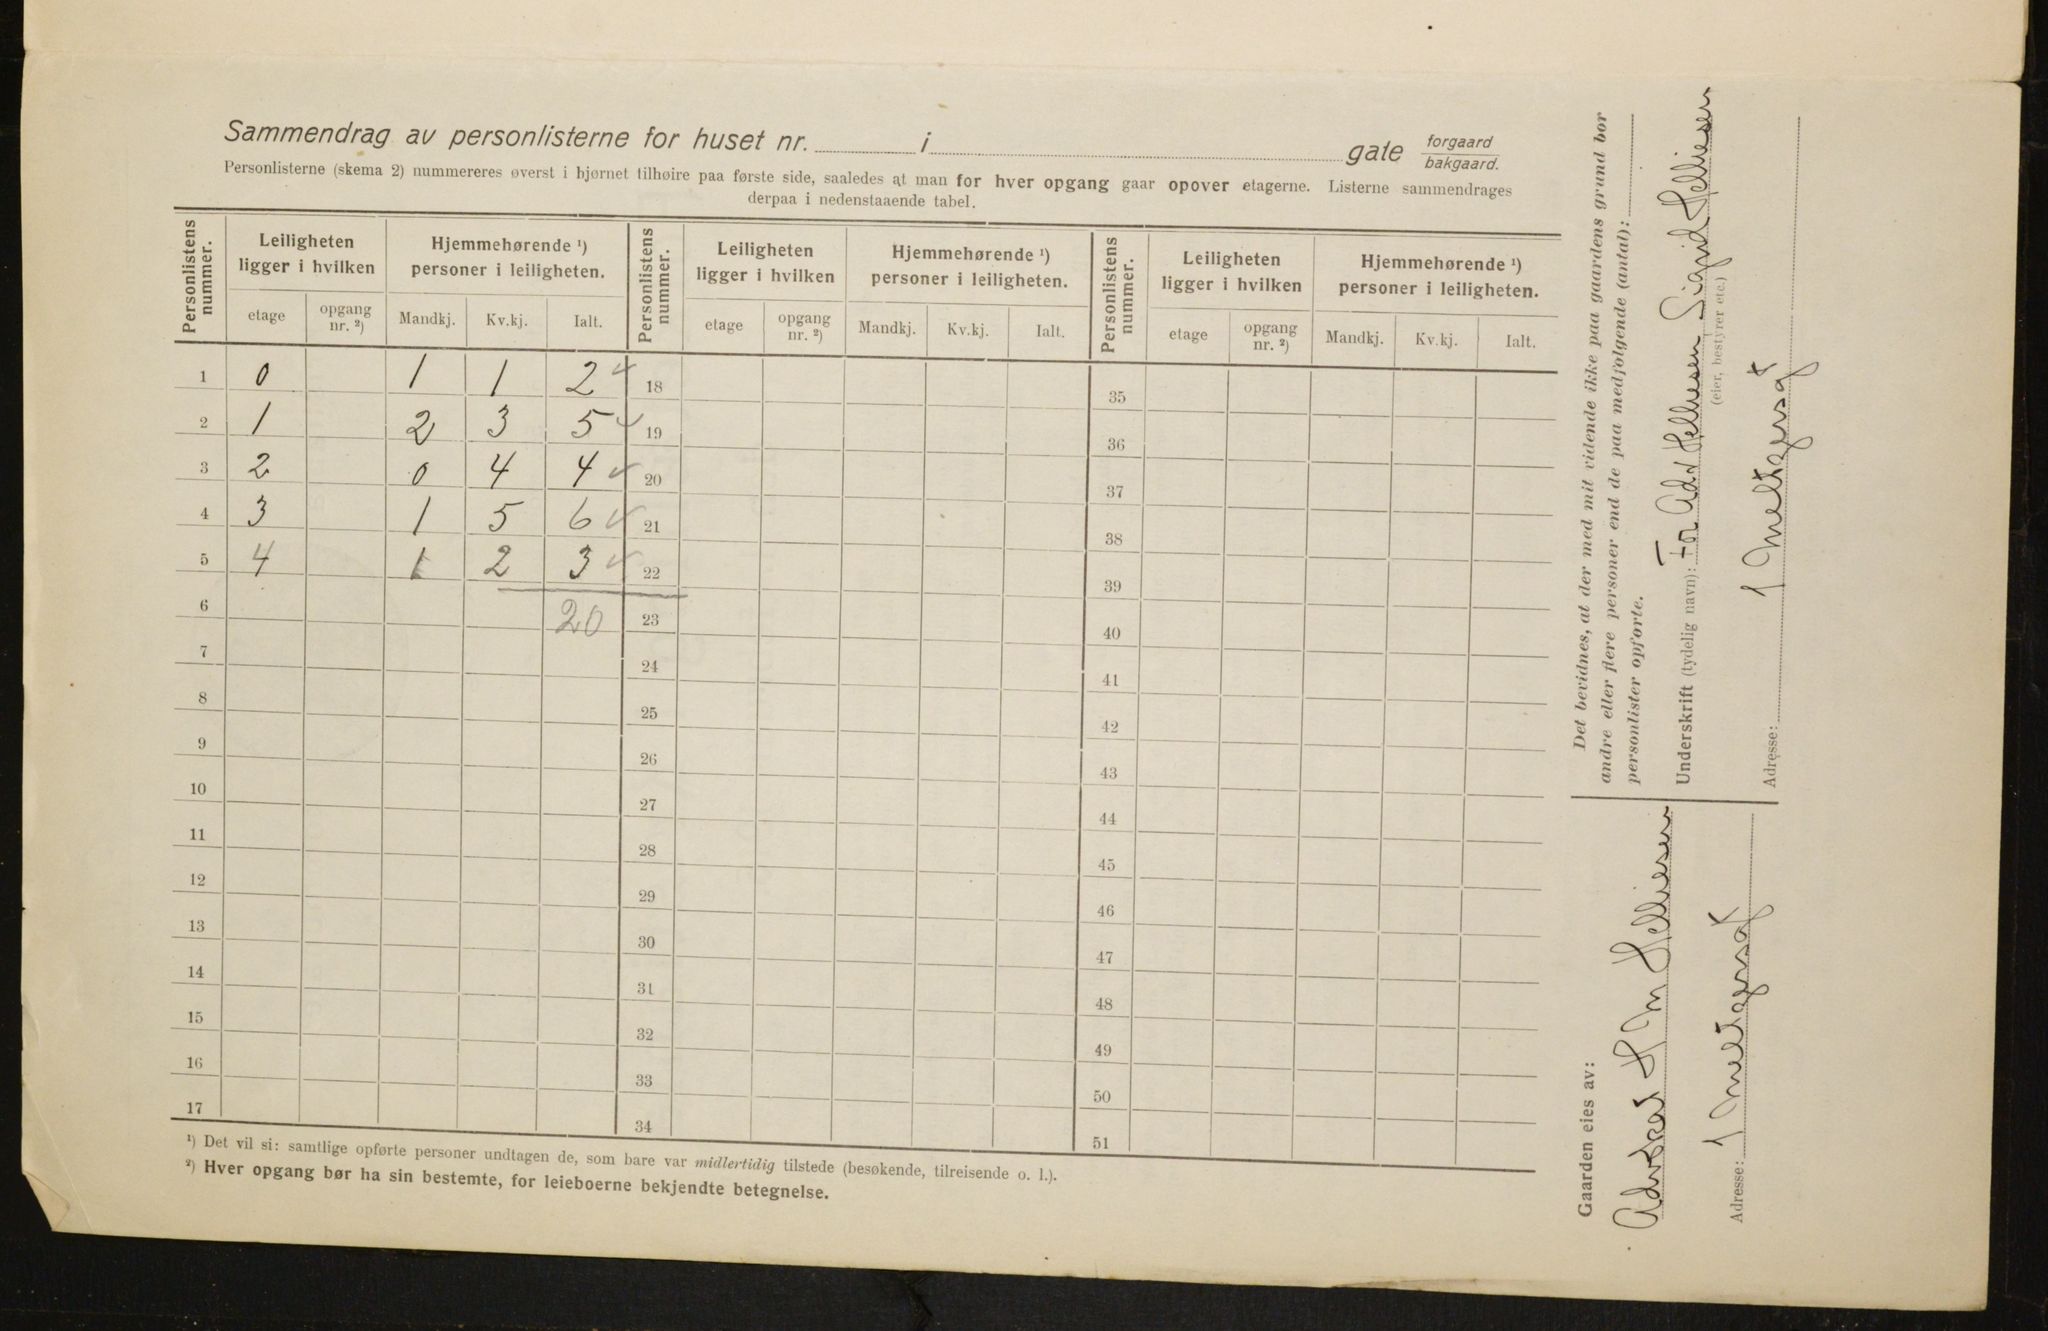 Sammendrag av personlisterne for huset nr. i gate forgaard bakgaard.
Personlisterne (skema 2) nummereres øverst i hjørnet tilhøire paa første side, saaledes at man for hver opgang gaar opover etagerne. Listerne sammendrages
derpaa i nedenstaaende tabel.
Personlistens nummer. Leiligheten ligger i hvilken Hjemmehørende ¹) personer i leiligheten. Personlistens nummer. Leiligheten ligger i hvilken Hjemmehørende ¹) personer i leiligheten. Personlistens nummer. Leiligheten ligger i hvilken Hjemmehørende ¹) personer i leiligheten.
etage opgang nr. ²) Mandkj. Kv.kj. Ialt. etage opgang nr. ²) Mandkj. Kv.kj. Ialt. etage opgang nr. ²) Mandkj. Kv.kj. Ialt.
1 0 1 1 2 ✓ 18 35
2 1 2 3 5 ✓ 19 36
3 2 0 4 4 ✓ 20 37
4 3 1 5 6 ✓ 21 38
5 4 1 2 3 ✓ 22 39
6 20 23 40
7 24 41
8 25 42
9 26 43
10 27 44
11 28 45
12 29 46
13 30 47
14 31 48
15 32 49
16 33 50
17 34 51
¹) Det vil si: samtlige opførte personer undtagen de, som bare var midlertidig tilstede (besøkende, tilreisende o. l.).
²) Hver opgang bør ha sin bestemte, for leieboerne bekjendte betegnelse.
Det bevidnes, at der med mit vidende ikke paa gaardens grund bor
andre eller flere personer end de paa medfølgende (antal):
personlister opførte.
Underskrift (tydelig navn): For Adv Selliesen Sigrid Selliesen
(eier, bestyrer etc.)
Adresse: 1 Meltzersgt
Gaarden eies av:
Advokat S M Selliesen
Adresse: 1 Meltzersgt